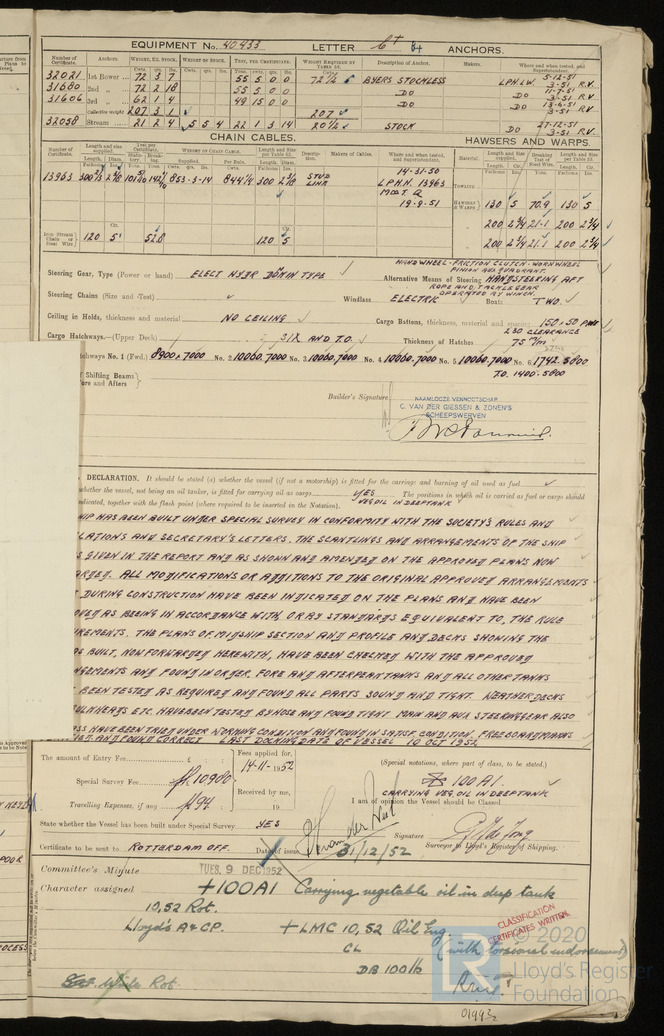 EQUIPMENT No. 40433 LETTER C† ANCHORS.
Number of Certificate. Anchors. WEIGHT, EX. STOCK. WEIGHT OF STOCK. TEST, PER CERTIFICATE. WEIGHT REQUIRED BY TABLE 53. Description of Anchor. Makers. Where and when tested, and Superintendent.
32021 1st Bower 72 3 7 55 5 0 0 72¼ BYERS STOCKLESS LPH.LW. 5-12-51 3-51 R.V.
31680 2nd 72 2 18 55 5 0 0 DO DO 11-7-51 3-51 R.V.
31606 3rd 62 1 4 49 15 0 0 DO DO 3-51 R.V.
Collective weight 207 3 1 207
32058 Stream 21 2 4 5 5 4 22 1 3 14 20½ STOCK DO 27-12-51 3-51 R.V.
CHAIN CABLES. HAWSERS AND WARPS.
Number of Certificate. Length and size supplied. Test per Certificate. WEIGHT OF CHAIN CABLE. Length and size per Table 53. Description. Makers of Cables. Where and when tested, and Superintendent. Material. Length and Size supplied. Breaking Test of Steel Wire. Length and Size per Table 53.
13963 853-3-14 844¼ 300 2⅜ STUD LINK 14-31-50 L.P.H.N. 13963 19-9-51
TOWLINE
HAWSERS & WARPS 130 5 70.9 130 5
200 2¾ 21.1 200 2¾
200 2¾ 21.1 200 2¾
Iron Stream Chain or Steel Wire 120 5" 52.8 120 5
HANDWHEEL-FRICTION CLUTCH-WORMWHEEL PINION AND QUADRANT.
Steering Gear, Type (Power or hand) ELECT HYDR DONKIN TYPE Alternative Means of Steering HANDSTEERING AFT
ROPE AND TACKLE GEAR OPERATED BY WINCH.
Steering Chains (Size and Test) Windlass ELECTRIC Boats TWO.
Ceiling in Holds, thickness and material NO CEILING Cargo Battens, thickness, material and spacing 150 x 50 PINE
230 CLEARANCE
Cargo Hatchways.—(Upper Deck) SIX AND T.O. Thickness of Hatches 75 m/m
Hatchways No. 1 (Fwd.) 8900 x 7000 No. 2 10060.7000 No. 3 10060.7000 No. 4 10060.7000 No. 5 10060.7000 No. 6 1742.5800
T.O. 1400.5800
of Shifting Beams
Fore and Afters
Builder's Signature
NAAMLOOZE VENNOOTSCHAP
C. VAN DER GIESSEN & ZONEN'S
SCHEEPSWERVEN
DECLARATION. It should be stated (a) whether the vessel (if not a motorship) is fitted for the carriage and burning of oil used as fuel
whether the vessel, not being an oil tanker, is fitted for carrying oil as cargo YES The positions in which oil is carried as fuel or cargo should
indicated, together with the flash point (where required to be inserted in the Notation). VEG OIL IN DEEPTANK
HIP HAS BEEN BUILT UNDER SPECIAL SURVEY IN CONFORMITY WITH THE SOCIETY'S RULES AND
LATIONS AND SECRETARY'S LETTERS. THE SCANTLINGS AND ARRANGEMENTS OF THE SHIP
S GIVEN IN THE REPORT AND AS SHOWN AND AMENDED ON THE APPROVED PLANS NOW
ARDED. ALL MODIFICATIONS OR ADDITIONS TO THE ORIGINAL APPROVED ARRANGEMENTS
DURING CONSTRUCTION HAVE BEEN INDICATED ON THE PLANS AND HAVE BEEN
OVED AS BEING IN ACCORDANCE WITH, OR BY STANDARDS EQUIVALENT TO, THE RULE
IREMENTS. THE PLANS OF MIDSHIP SECTION AND PROFILE AND DECKS SHOWING THE
AS BUILT, NOW FORWARDED HEREWITH, HAVE BEEN CHECKED WITH THE APPROVED
NGEMENTS AND FOUND IN ORDER. FORE AND AFTERPEAKTANKS AND ALL OTHER TANKS
BEEN TESTED AS REQUIRED AND FOUND ALL PARTS SOUND AND TIGHT. WEATHERDECKS
ULKHEADS ETC. HAVE BEEN TESTED BY HOSE AND FOUND TIGHT MAIN AND AUX STEERINGGEAR ALSO
SS HAVE BEEN TRIED UNDER WORKING CONDITION AND FOUND IN SATISF. CONDITION. FREEBOARDMARKS
IED AND FOUND CORRECT LAST DOCKING DATE OF VESSEL 10 OCT 1952
The amount of Entry Fee £ : :
Special Survey Fee fl. 10980
Travelling Expenses, if any fl 94.
Fees applied for, 14-11-1952
Received by me, 19
(Special notations, where part of class, to be stated.)
100A1.
CARRYING VEG. OIL IN DEEPTANK
I am of opinion the Vessel should be Classed
State whether the Vessel has been built under Special Survey YES
Signature
Surveyor to Lloyd's Register of Shipping.
Certificate to be sent to ROTTERDAM OFF. Date of issue 31/12/52
Committee's Minute TUES. 9 DEC 1952
Character assigned +100A1 Carrying vegetable oil in deep tank
10,52 Rot.
Lloyd's A & CP. + LMC 10,52 Oil Eng.
CL (with torsional endorsement)
DB 100 lb
CLASSIFICATION CERTIFICATES WRITTEN
© 2020
LR Lloyd's Register
Foundation